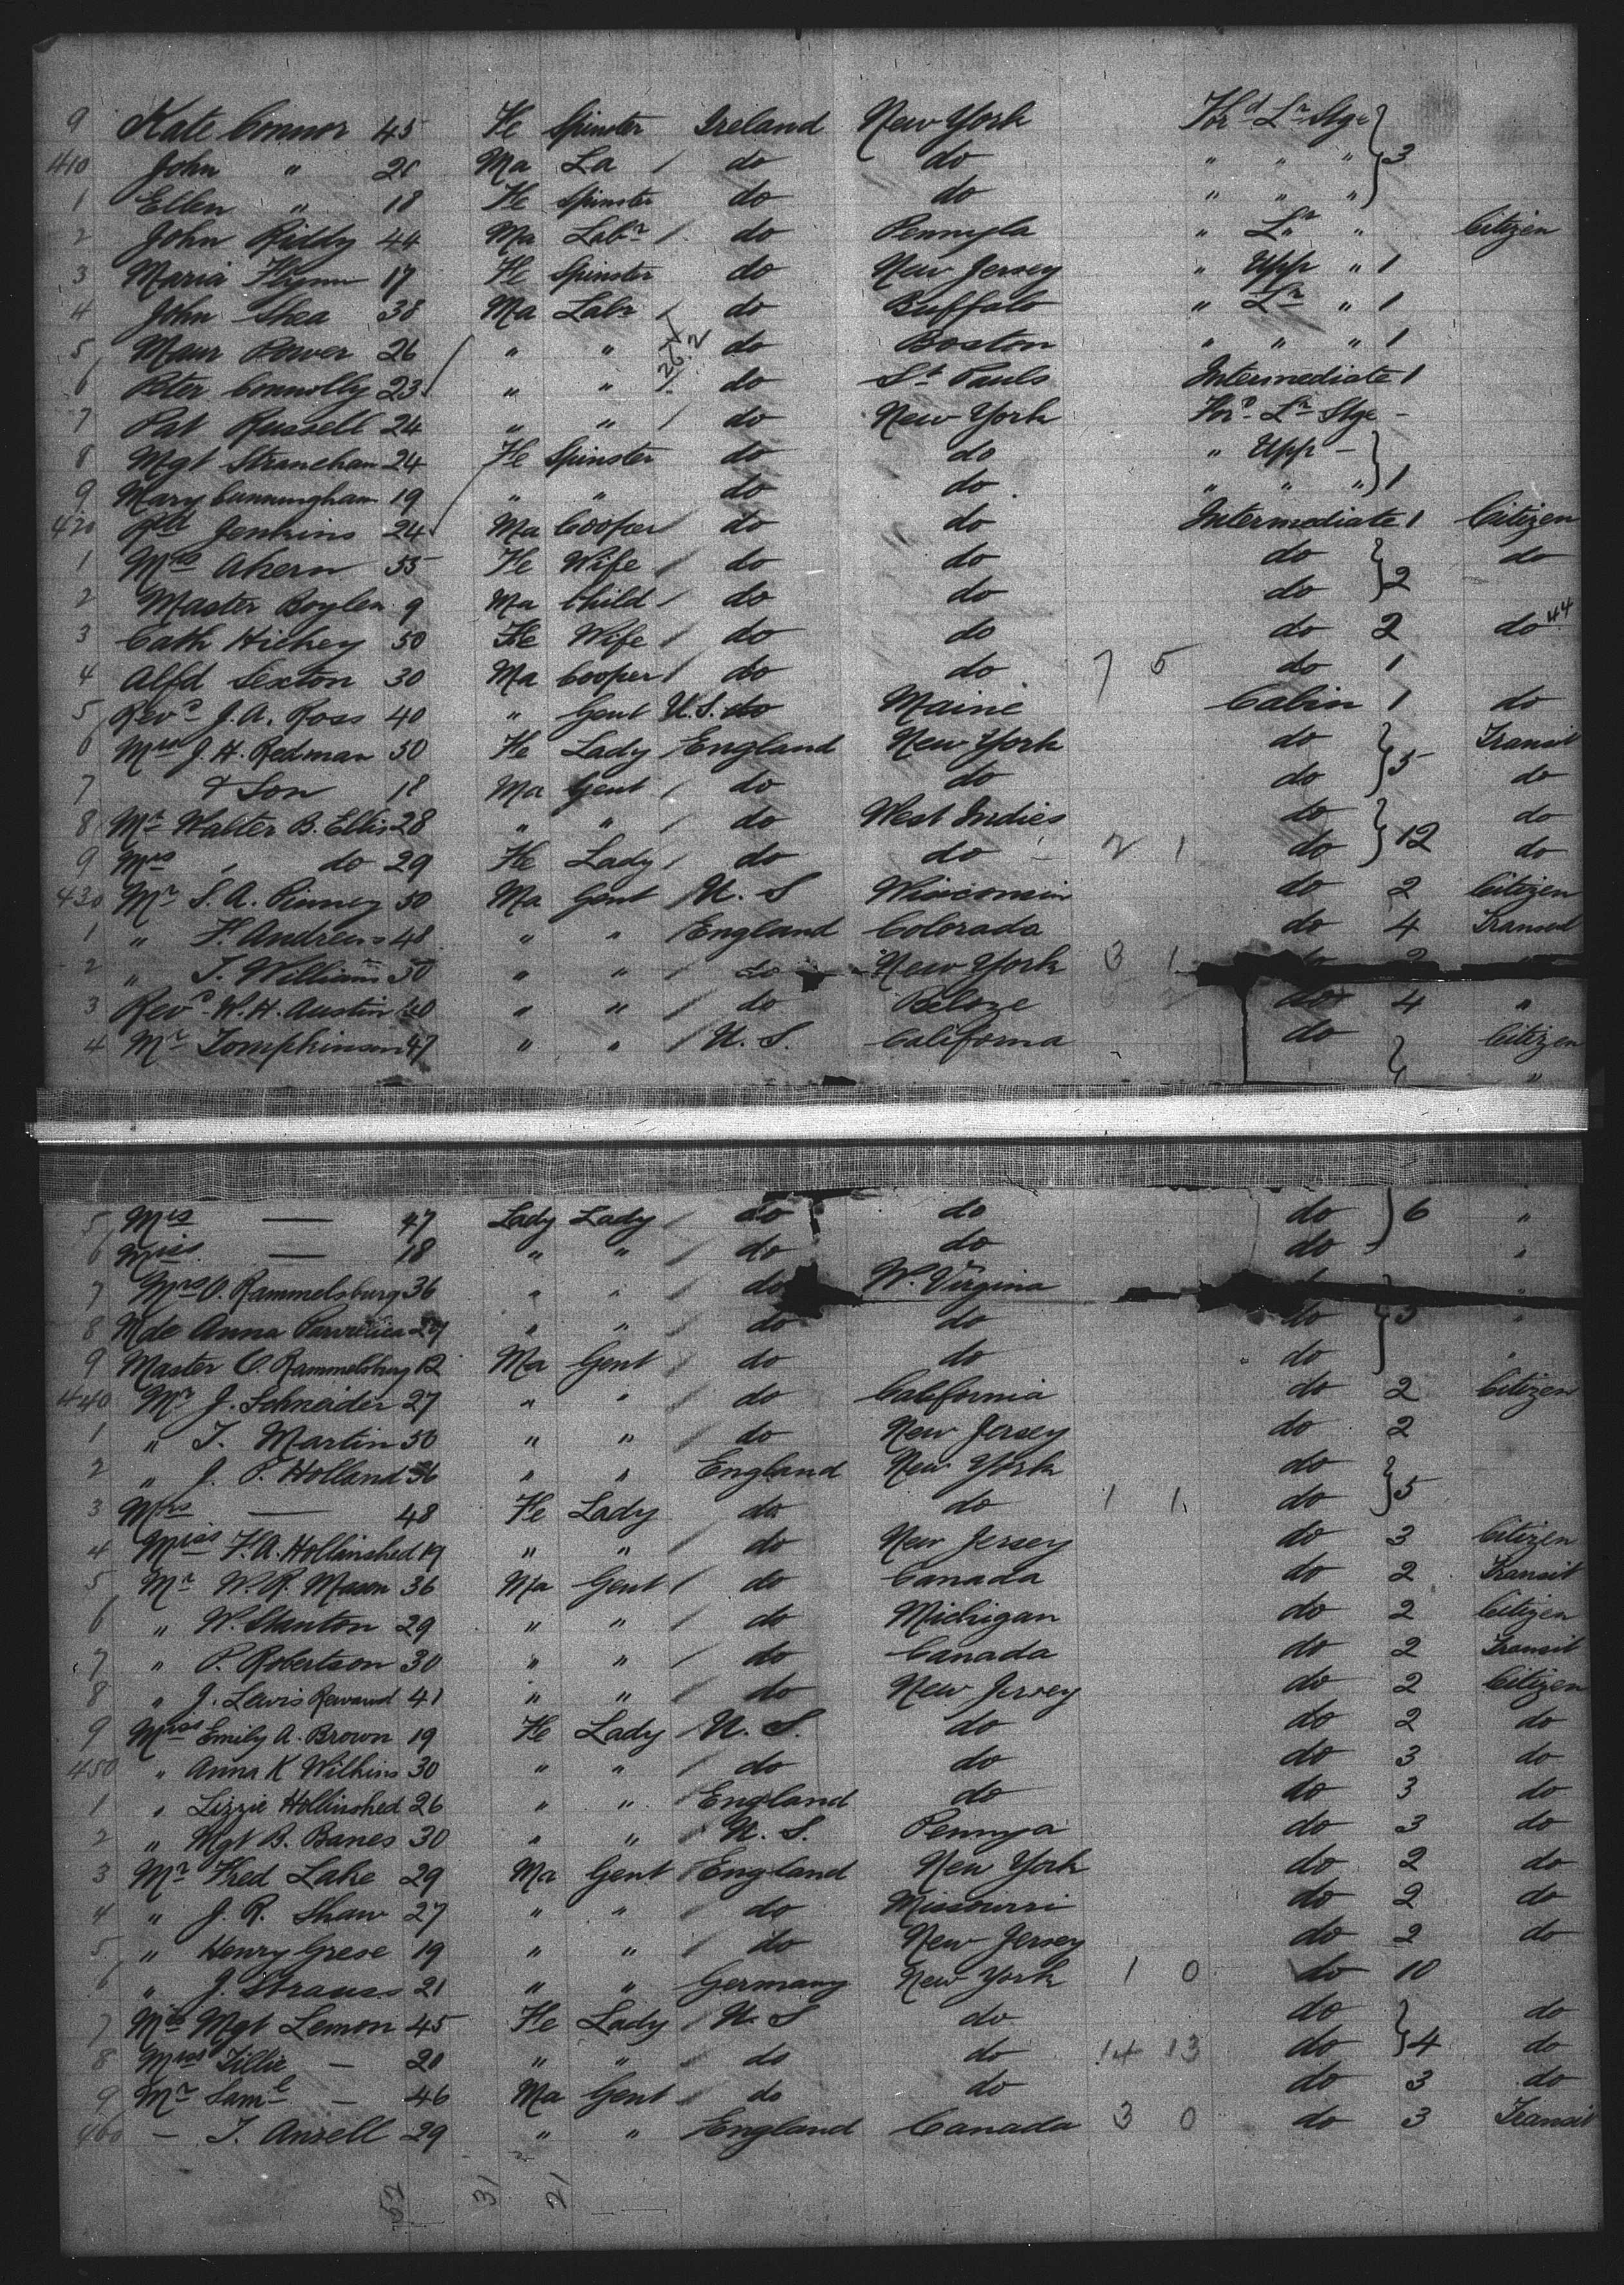 9 Kate Connor 45 Fe Spinster Ireland New York For'd L'r Stge
410 John " 20 Ma La / do do " " " } 3
1 Ellen " 18 Fe Spinster do do " " "
2 John Riddy 44 Ma Lab'r / do Pennyla " L'r " Citizen
3 Maria Flynn 17 Fe Spinster do New Jersey " Upp " 1
4 John Shea 38 Ma Lab'r / do Buffalo " L'r " 1
5 Maur Power 26 " " do Boston " " " 1
6 Peter Connolly 23 " " / do St Pauls Intermediate 1
7 Pat Russell 24 " " / do New York For'd L'r Stge -
8 Mgt Stranehan 24 Fe Spinster do do " Upp -
9 Mary Cunningham 19 " " do do " " " } 1
420 Jenkins 24 Ma Cooper / do do Intermediate 1 Citizen
1 Mrs Ahern 55 Fe Wife / do do do do
2 Master Boylen 9 Ma Child / do do do } 2
3 Cath Hickey 50 Fe Wife / do do do 2 do 44
4 Alfd Sexton 30 Ma Cooper / do do 7 5 do 1
5 Rev'd J. A. Ross 40 " Gent U.S. do Maine Cabin 1 do
6 Mrs J. H. Redman 50 Fe Lady / England New York do Transit
7 & Son 18 Ma Gent / do do do } 5 do
8 Mr Walter B. Ellis 28 " " / do West Indies do do
9 Mrs " do 29 Fe Lady / do do 2 1 do } 12 do
430 Mr S. A. Pinney 50 Ma Gent / U. S Wisconsin do 2 Citizen
1 " F. Andrews 48 " " / England Colorado do 4 Transit
2 " T. Williams 50 " " / do New York 3 1 do 2
3 Rev'd W. H. Austin 40 " " / do Belize do 4 "
4 Mr Tompkinson 47 " " / U. S. California do Citizen
"
5 Mrs — 47 Lady Lady / do do do } 6 "
6 Miss — 18 " " / do do do "
7 Mrs O. Rammelsburg 36 " " / do W. Virginia "
8 Mde Anna 29 " " / do do do } 3 "
9 Master O. Rammelsburg 12 Ma Gent / do do do "
440 Mr J. Schneider 27 " " / do California do 2 Citizen
1 " T. Martin 50 " " / do New Jersey do 2
2 " J. P. Holland 36 " " England New York do
3 Mrs — 48 Fe Lady do do 1 1 do } 5
4 Miss F. A. Hollinshed 19 " " do New Jersey do 3 Citizen
5 Mr W. R. Mason 36 Ma Gent / do Canada do 2 Transit
6 " W. Stanton 29 " " / do Michigan do 2 Citizen
7 " P. Robertson 30 " " / do Canada do 2 Transit
8 " J. Lewis 41 " " / do New Jersey do 2 Citizen
9 Miss Emily A. Brown 19 Fe Lady / U. S. do do 2 do
450 " Anna K Wilkins 30 " " / do do do 3 do
1 " Lizzie Hollinshed 26 " " / England do do 3 do
2 " Mgt B. Banes 30 " " / U. S. Pennya do 3 do
3 Mr Fred Lake 29 Ma Gent / England New York do 2 do
4 " J. R. Shaw 27 " " / do Missourri do 2 do
5 " Henry Grese 19 " " / do New Jersey do 2 do
6 " J. Strauss 21 " " Germany New York 1 0 do 10
7 Mrs Mgt Lemon 45 Fe Lady / U. S do do do
8 Miss Tillie — 20 " " / do do 14 13 do } 4 do
9 Mr Saml — 46 Ma Gent / do do do 3 do
460 — T. Ansell 29 " " England Canada 3 0 do 3 Transit
52 31 21